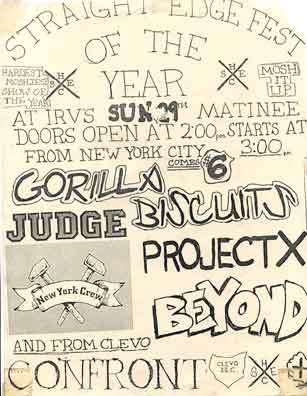 STRAIGHT EDGE FEST
OF THE
YEAR
HARDEST
MOSHIEST
SHOW OF
THE YEAR!
S H X E C
S H X E C
MOSH
PIT
UP!
AT IRV'S SUN. 29TH MATINEE
DOORS OPEN AT 2:00pm STARTS AT
3:00pm
FROM NEW YORK CITY COMES $6
GORILLA
BISCUITS
JUDGE
New York Crew
PROJECT X
BEYOND
AND FROM CLEVO
CONFRONT
CLEVO
S.E.C.
S H X E C